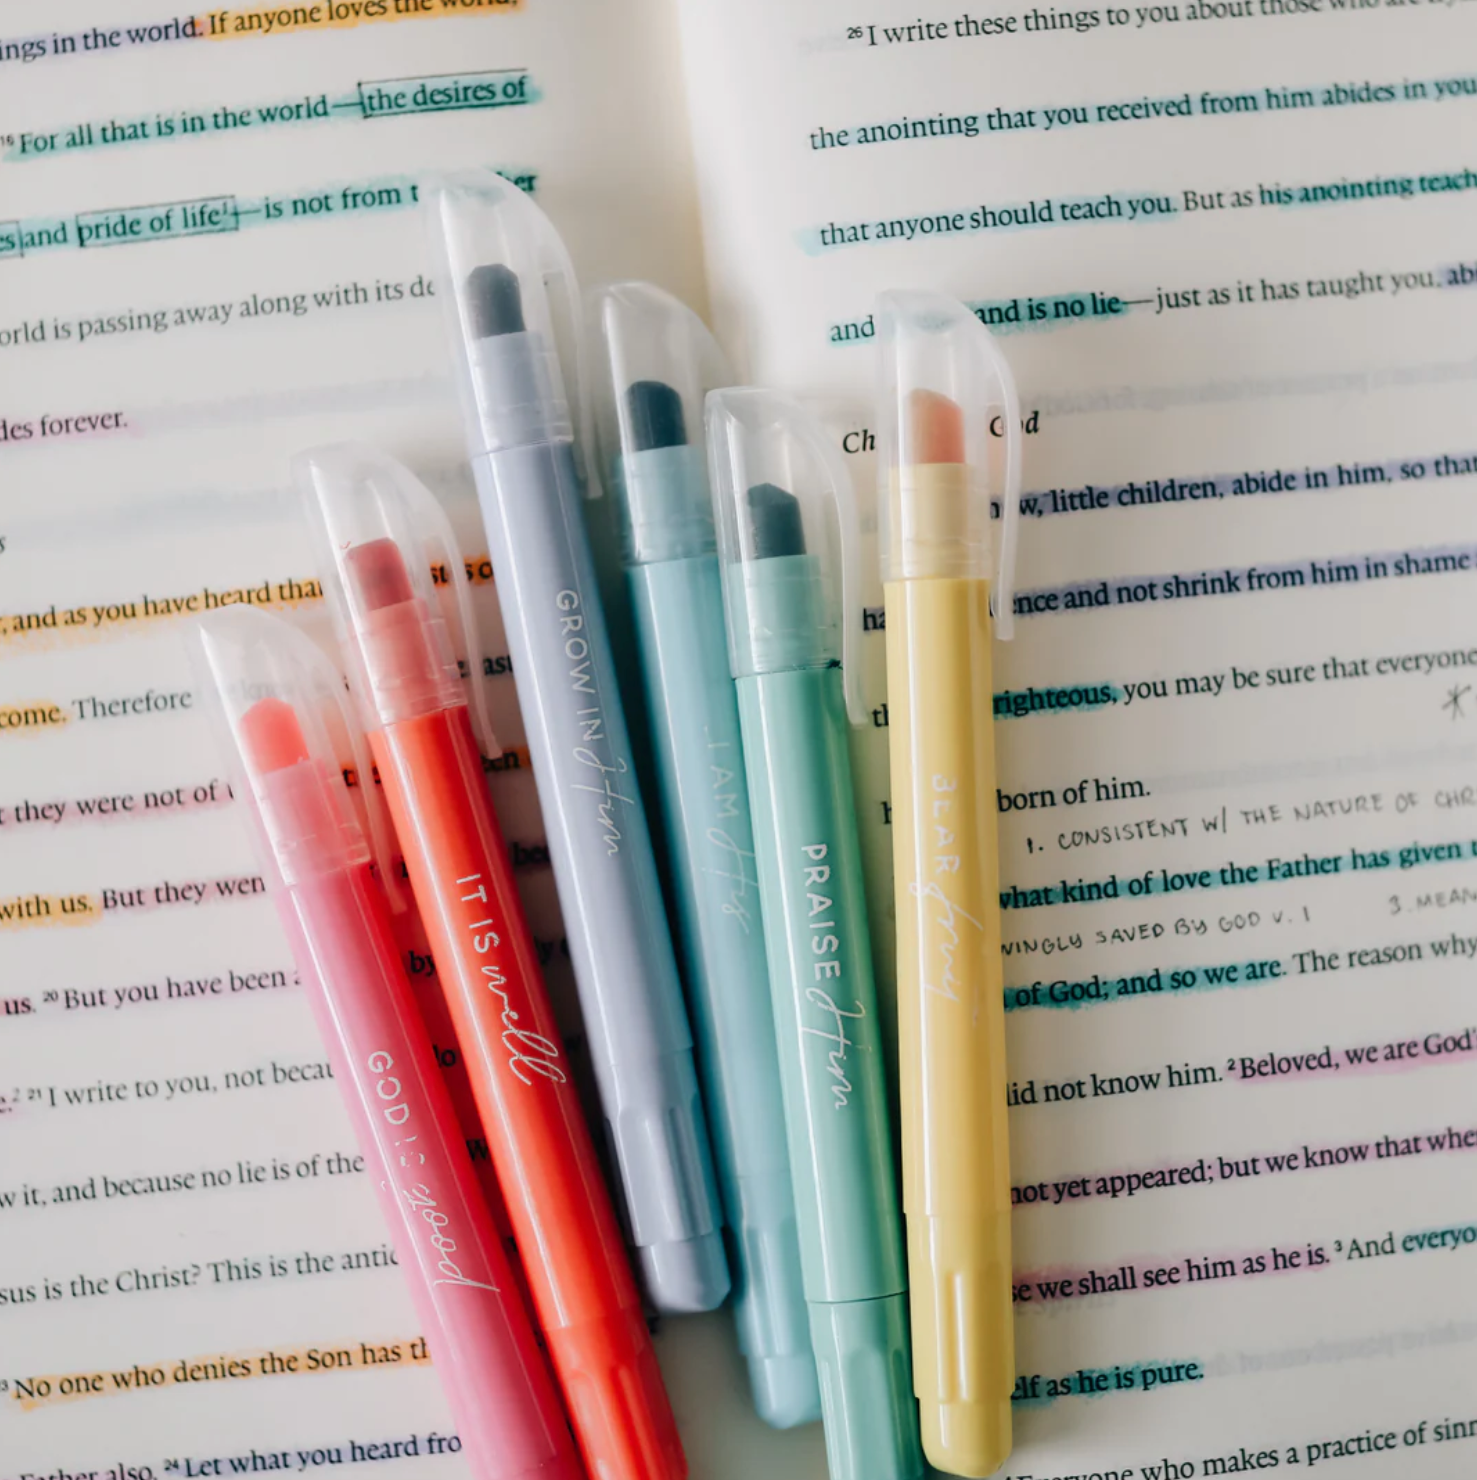 ings in the world. If anyone loves the world,
¹⁶ For all that is in the world—the desires of
and pride of life¹—is not from
orld is passing away along with its
des forever.
, and as you have heard that
come. Therefore
they were not of
with us. But they
us. ²⁰ But you have been
²¹ I write to you, not
w it, and because no lie is of the
sus is the Christ? This is the
No one who denies the Son has
ather also. ²⁴ Let what you heard
²⁶ I write these things to you about those who are
the anointing that you received from him abides in you
that anyone should teach you. But as his anointing teach
and and is no lie—just as it has taught you,
Ch
little children, abide in him, so that
ence and not shrink from him in shame
righteous, you may be sure that everyone
born of him.
1. CONSISTENT W/ THE NATURE OF CHR
what kind of love the Father has given
VINGLY SAVED BY GOD V. 1 3. MEAN
of God; and so we are. The reason why
did not know him. ² Beloved, we are God'
not yet appeared; but we know that
we shall see him as he is. ³ And everyo
elf as he is pure.
who makes a practice of
GOD is good
IT IS well
GROW IN Him
I AM His
PRAISE Him
BEAR fruit